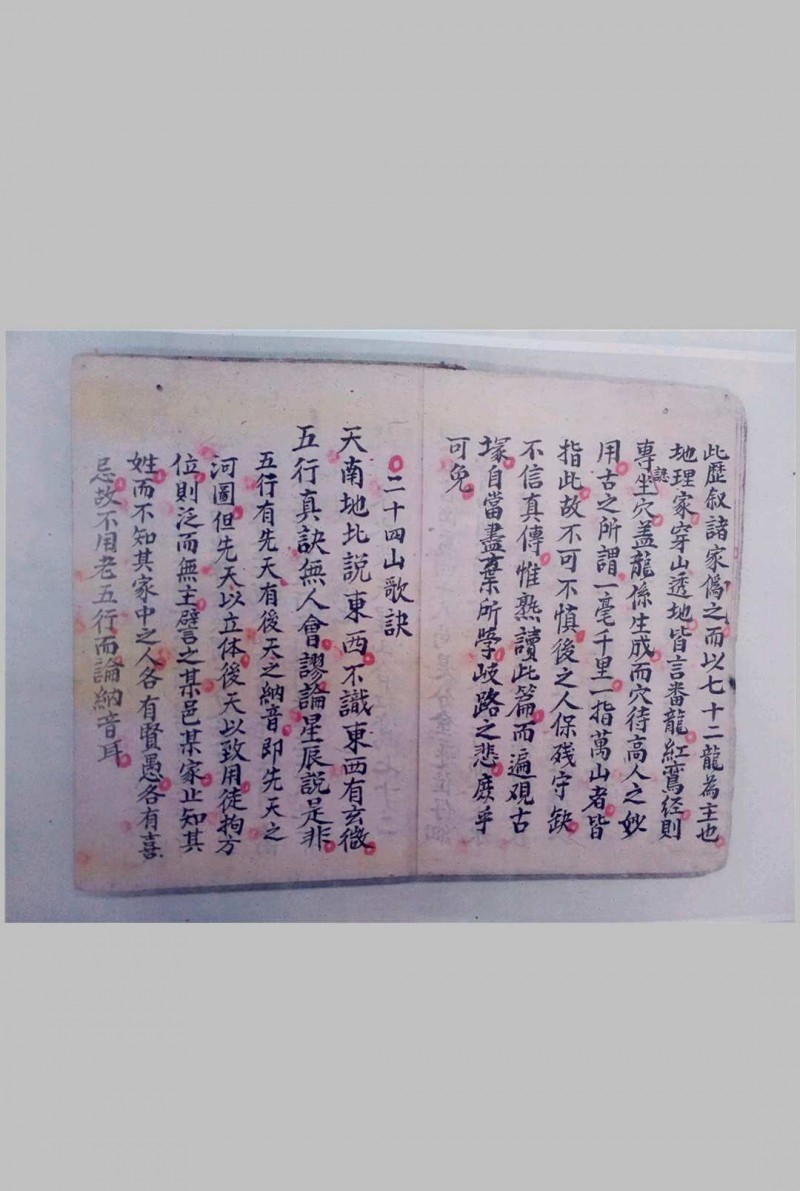 此歷叙諸家僞之而以七十二龍為主也
地理家穿山透地皆言畨龍紅鸞經則
專坐穴盖龍係生成而穴待高人之妙
用古之所謂一毫千里一指萬山者皆
指此故不可不慎後之人保残守缺
不信真傳惟熟讀此篇而遍覌古
塚自當盡棄所學岐路之悲庻乎
可免
二十四山歌訣
天南地北說東西不識東西有玄微
五行真訣無人會謬論星辰說是非
五行有先天有後天之納音即先天之
河圖但先天以立体後天以致用徒拘方
位則泛而無主譬之某邑某家止知其
姓而不知其家中之人各有賢愚各有喜
忌故不用老五行而論納音耳